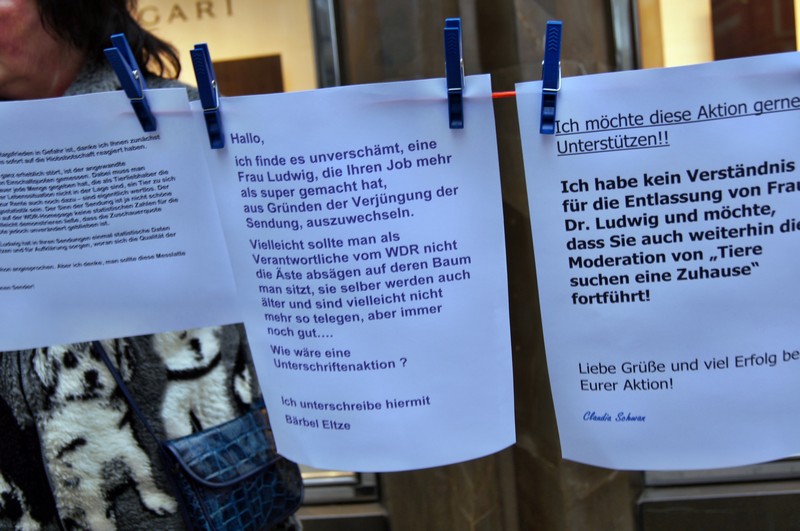 GARI
Tagesfrieden in Gefahr ist, danke ich Ihnen zunächst
sofort auf die Hiobsbotschaft reagiert haben.
ganz erheblich stört, ist der angewandte
Einschaltquoten gemessen. Dabei muss man
jede Menge gegeben hat, die als Tierliebhaber die
Lebenssituation nicht in der Lage sind, ein Tier zu sich
Rente auch noch dazu – sind eigentlich wertlos. Der
ist. Der Sinn der Sendung ist ja nicht schöne
auf der WDR-Homepage keine statistischen Zahlen für die
demonstrieren ließe, dass die Zuschauerquote
jedoch unverändert geblieben ist.
Ludwig hat in Ihren Sendungen einmal statistische Daten
und für Aufklärung sorgen, woran sich die Qualität der
angesprochen. Aber ich denke, man sollte diese Messlatte
Sender!
Hallo,
ich finde es unverschämt, eine
Frau Ludwig, die Ihren Job mehr
als super gemacht hat,
aus Gründen der Verjüngung der
Sendung, auszuwechseln.
Vielleicht sollte man als
Verantwortliche vom WDR nicht
die Äste absägen auf deren Baum
man sitzt, sie selber werden auch
älter und sind vielleicht nicht
mehr so telegen, aber immer
noch gut....
Wie wäre eine
Unterschriftenaktion ?
Ich unterschreibe hiermit
Bärbel Eltze
Ich möchte diese Aktion gerne
Unterstützen!!
Ich habe kein Verständnis
für die Entlassung von Frau
Dr. Ludwig und möchte,
dass Sie auch weiterhin die
Moderation von „Tiere
suchen eine Zuhause“
fortführt!
Liebe Grüße und viel Erfolg be
Eurer Aktion!
Claudia Schwan